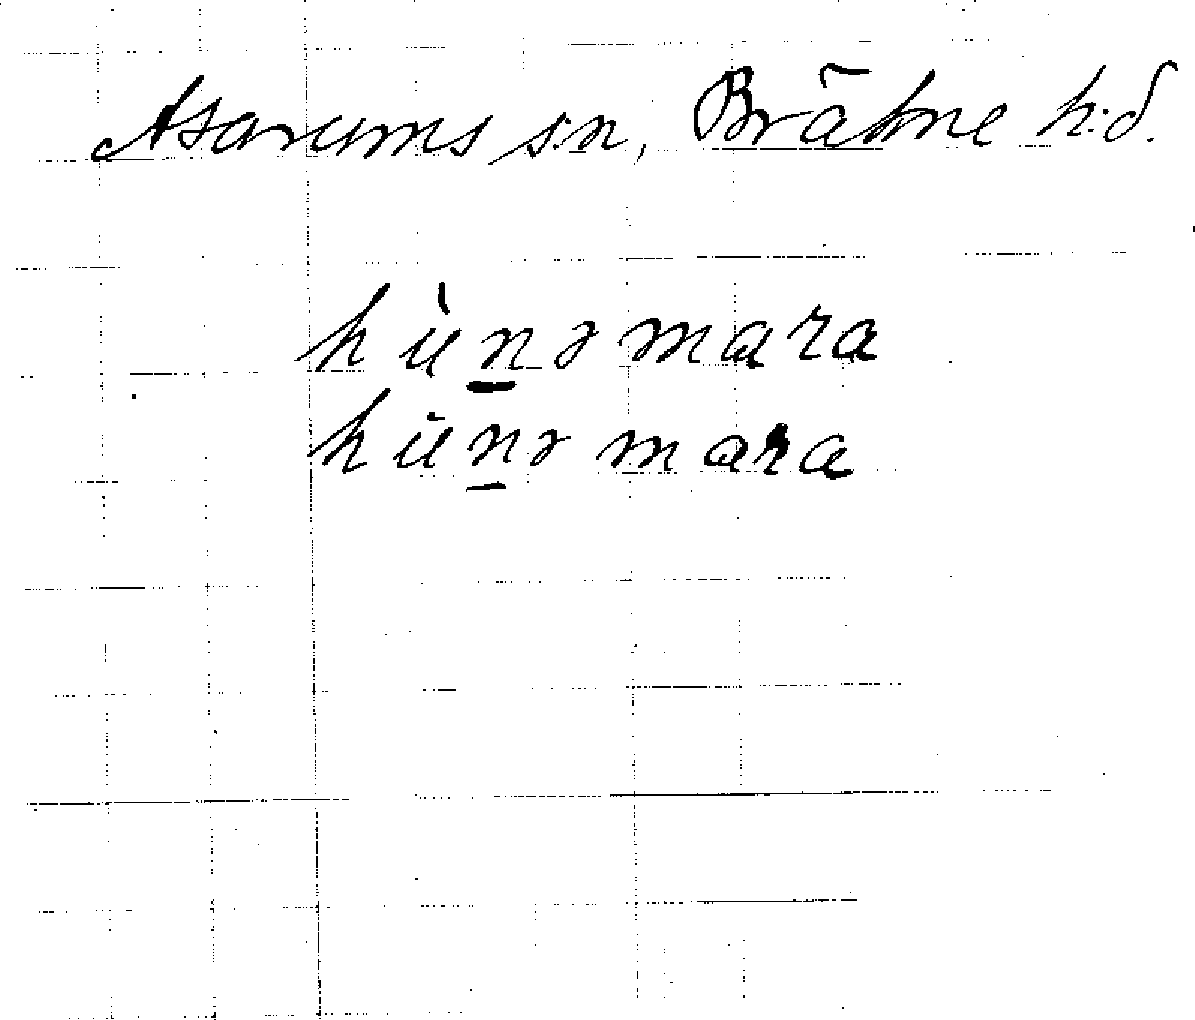 Asarums s:n, Bräkne h:d.
hùnəmara
hùnə mara